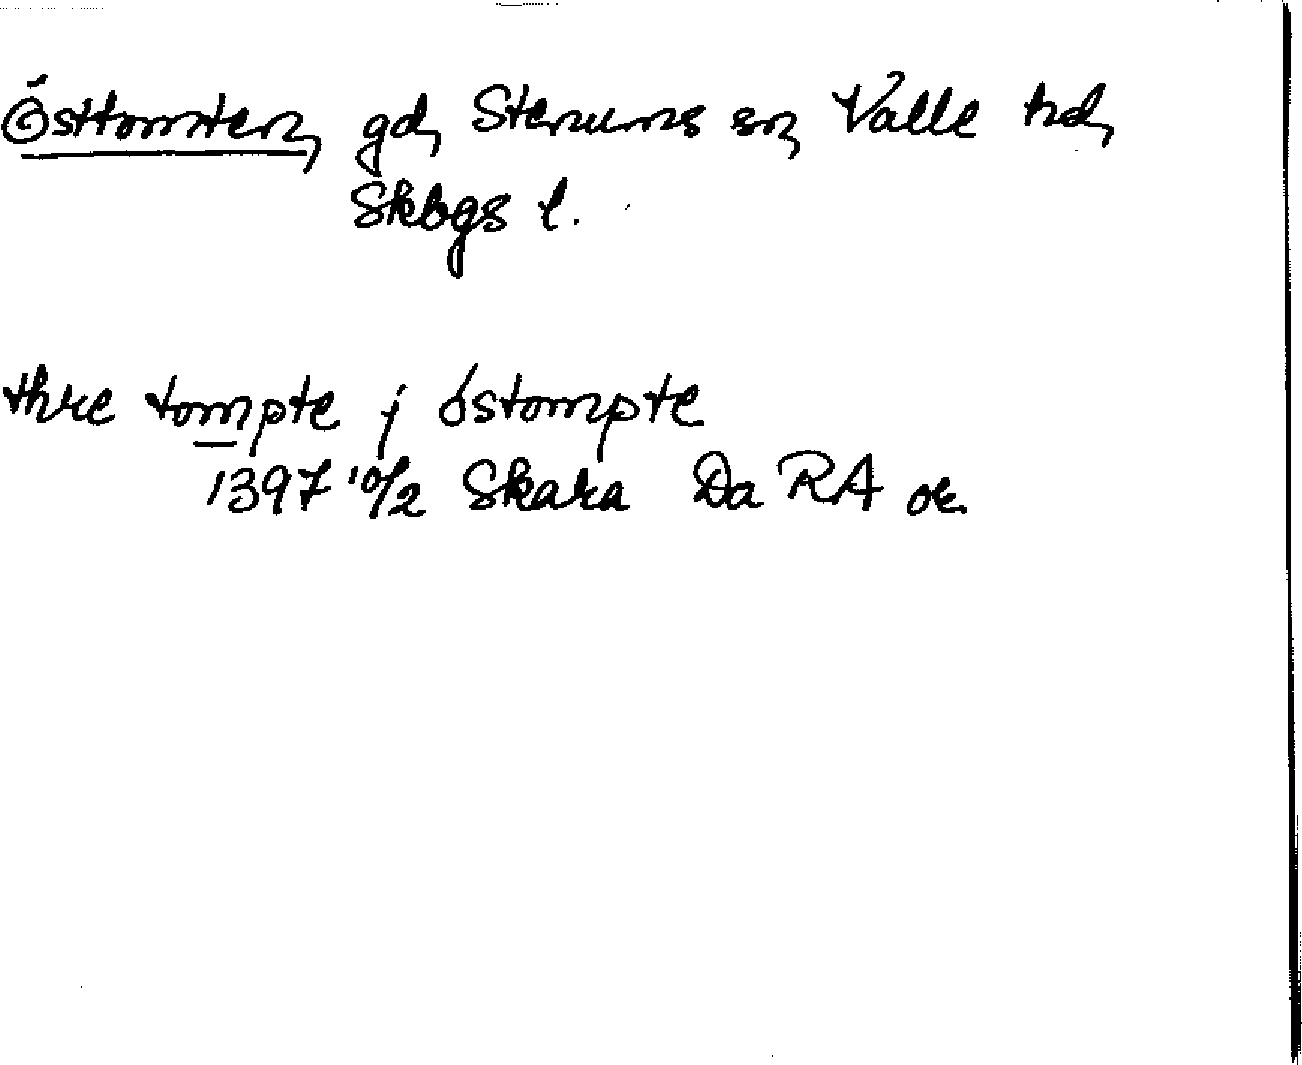 Östtomten, gd, Stenums sn, Valle hd,
Skbgs l.
thre tompte j østompte
1397 10/2 Skara Da RA or.